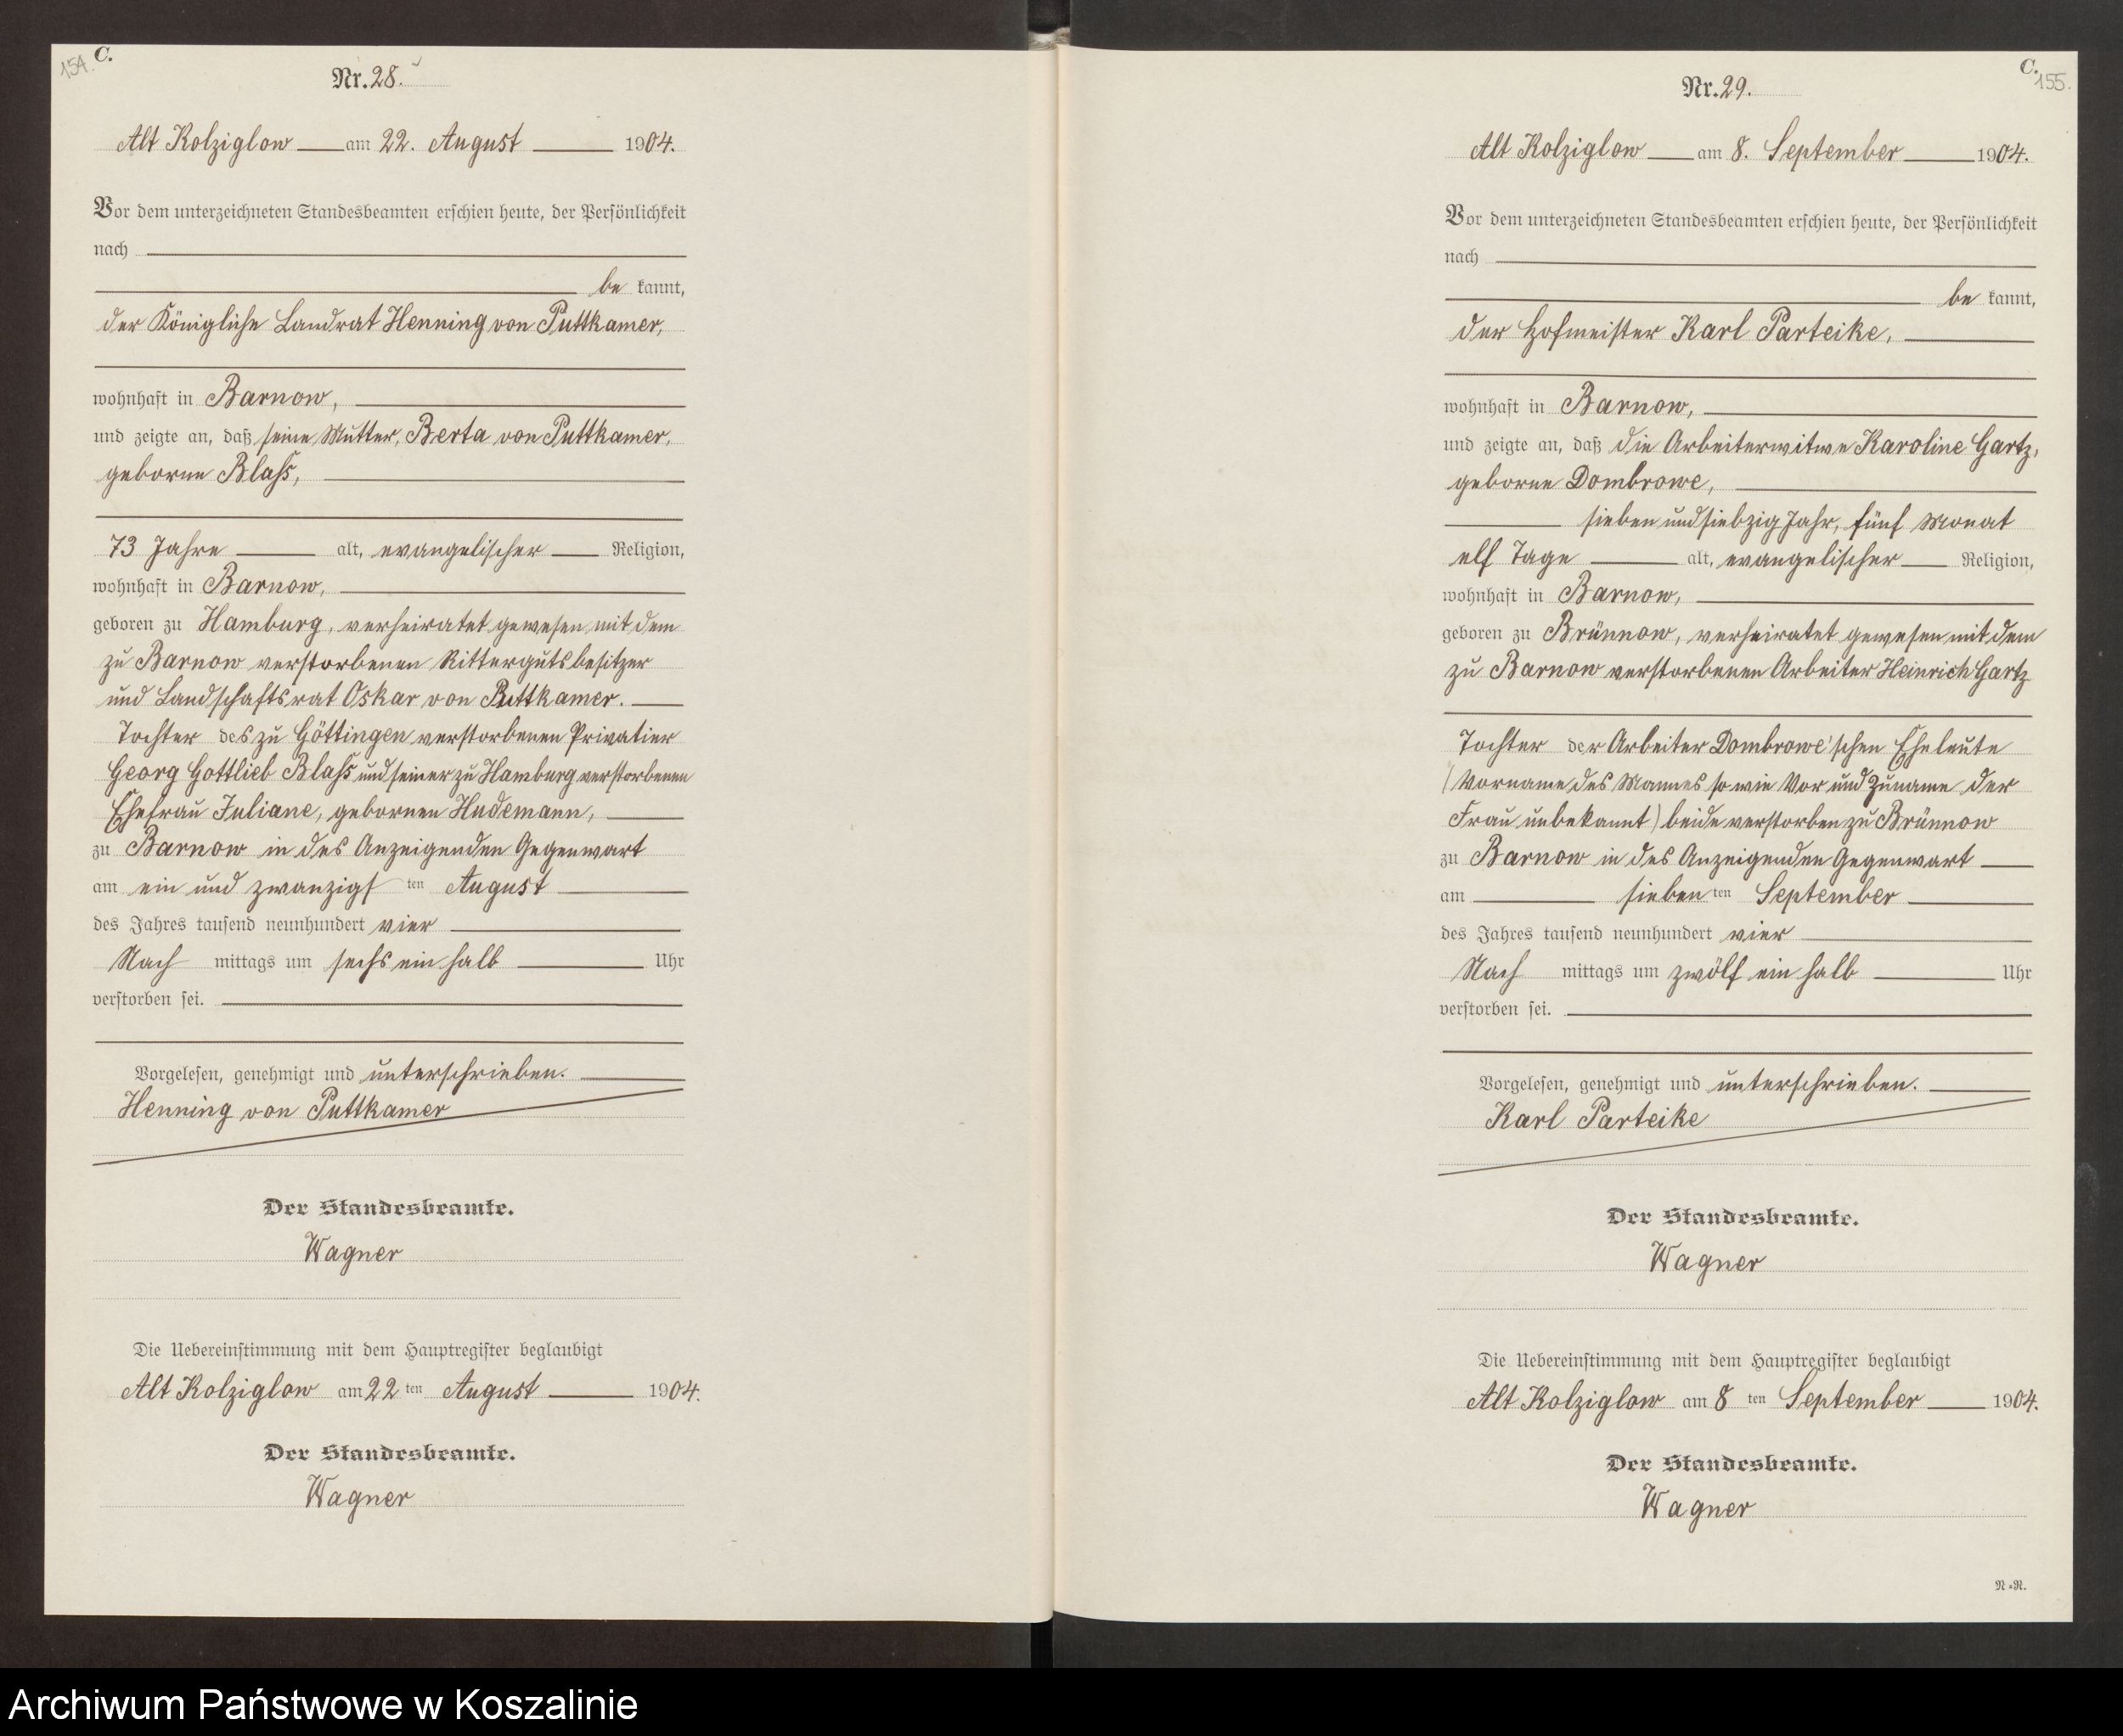 154.
C.
Nr. 28.
Alt Kolziglow am 22. August 1904.
Vor dem unterzeichneten Standesbeamten erschien heute, der Persönlichkeit
nach
be kannt,
der Königliche Landrat Henning von Puttkamer,
wohnhaft in Barnow,
und zeigte an, daß seine Mutter, Berta von Puttkamer,
geborne Blaß,
73 Jahre alt, evangelischer Religion,
wohnhaft in Barnow,
geboren zu Hamburg, verheiratet gewesen mit dem
zu Barnow verstorbenen Rittergutsbesitzer
und Landschaftsrat Oskar von Puttkamer.
Tochter des zu Göttingen verstorbenen Privatier
Georg Gottlieb Blaß und seiner zu Hamburg verstorbenen
Ehefrau Juliane, gebornen Hudemann,
zu Barnow in des Anzeigenden Gegenwart
am ein und zwanzigs ten August
des Jahres tausend neunhundert vier
Nach mittags um sechs ein halb Uhr
verstorben sei.
Vorgelesen, genehmigt und unterschrieben.
Henning von Puttkamer
Der Standesbeamte.
Wagner
Die Uebereinstimmung mit dem Hauptregister beglaubigt
Alt Kolziglow am 22 ten August 1904.
Der Standesbeamte.
Wagner
C.
155.
Nr. 29.
Alt Kolziglow am 8. September 1904.
Vor dem unterzeichneten Standesbeamten erschien heute, der Persönlichkeit
nach
be kannt,
der Hofmeister Karl Parteike,
wohnhaft in Barnow,
und zeigte an, daß die Arbeiterwitwe Karoline Gartz,
geborne Dombrowe,
sieben und siebzig Jahr, fünf Monat
elf Tage alt, evangelischer Religion,
wohnhaft in Barnow,
geboren zu Brünnow, verheiratet gewesen mit dem
zu Barnow verstorbenen Arbeiter Heinrich Gartz
Tochter der Arbeiter Dombrowe'schen Eheleute
(Vorname des Mannes sowie Vor und Zuname der
Frau unbekannt) beide verstorben zu Brünnow
zu Barnow in des Anzeigenden Gegenwart
am sieben ten September
des Jahres tausend neunhundert vier
Nach mittags um zwölf ein halb Uhr
verstorben sei.
Vorgelesen, genehmigt und unterschrieben.
Karl Parteike
Der Standesbeamte.
Wagner
Die Uebereinstimmung mit dem Hauptregister beglaubigt
Alt Kolziglow am 8 ten September 1904.
Der Standesbeamte.
Wagner
N=N.
Archiwum Państwowe w Koszalinie